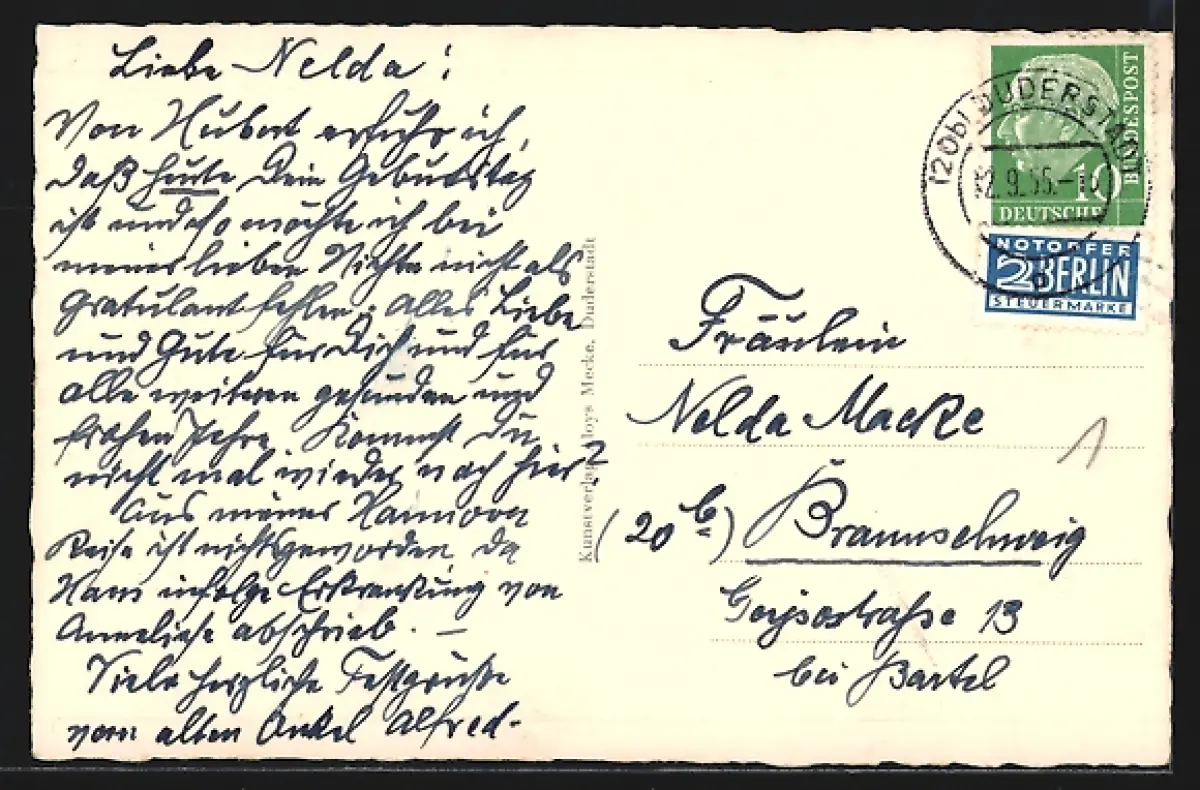 Liebe Nelda!
Von Hubert erfuhr ich,
daß heute Dein Geburtstag
ist und so möchte ich bei
meiner lieben Nichte nicht als
Gratulant fehlen: alles Liebe
und Gute für Dich und für
alle weiteren gesunden und
frohen Jahre. Kommst Du
nicht mal wieder nach hier?
Aus meiner Hannover
Reise ist nichts geworden, da
Hans infolge Erkrankung von
Anneliese abschrieb. –
Viele herzliche Festgrüße
vom alten Onkel Alfred.
Kunstverlag Aloys Mecke, Duderstadt
(20b) DUDERSTADT
2.9.55.-
10
DEUTSCHE
BUNDESPOST
NOTOPFER
2 BERLIN
STEUERMARKE
Fräulein
Nelda Macke
(20 b) Braunschweig
Geysostraße 13
bei Bartel
1